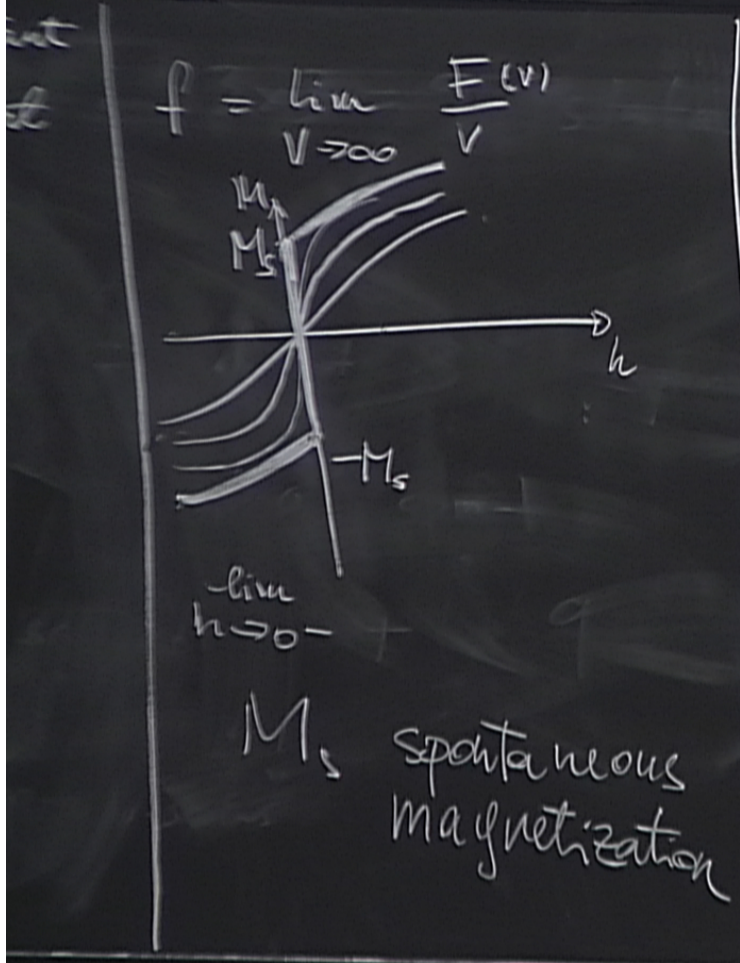 f = lim F(V)
V→∞ V
M
Ms
h
-Ms
lim
h→0-
Ms spontaneous
magnetization